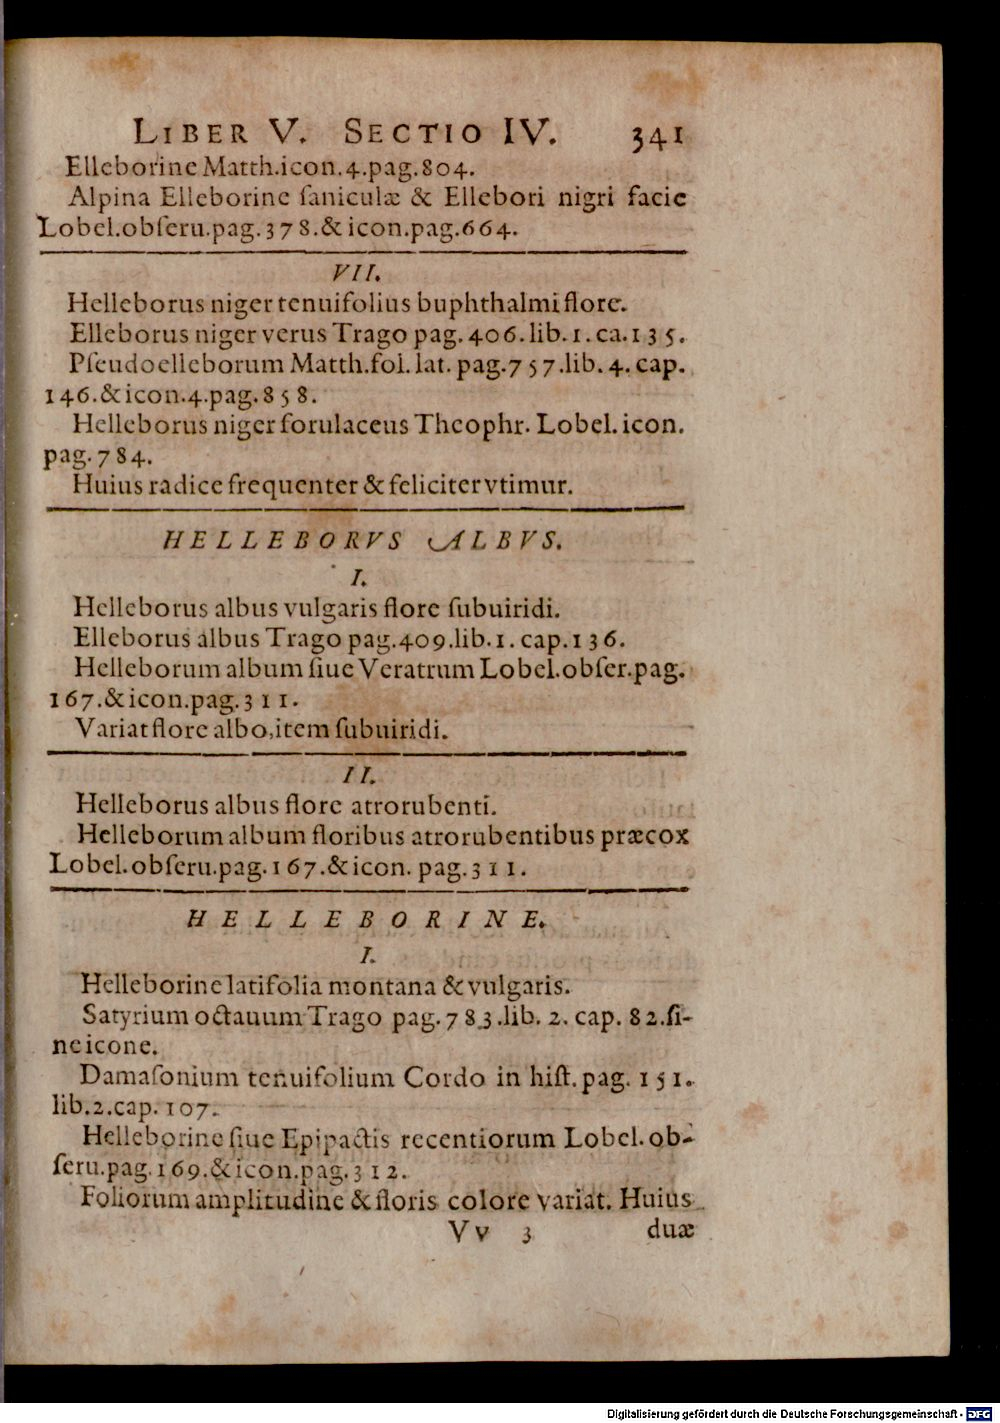 LIBER V. SECTIO IV. 341
Elleborine Matth.icon.4.pag.804.
Alpina Elleborine ſaniculæ & Ellebori nigri facie
Lobel.obſeru.pag.378.& icon.pag.664.
VII.
Helleborus niger tenuifolius buphthalmi flore.
Elleborus niger verus Trago pag.406.lib.1.ca.135.
Pſeudoelleborum Matth.fol.lat. pag.757.lib.4.cap.
146.& icon.4.pag.858.
Helleborus niger forulaceus Theophr. Lobel.icon.
pag.784.
Huius radice frequenter & feliciter vtimur.
HELLEBORVS ALBVS.
I.
Helleborus albus vulgaris flore ſubuiridi.
Elleborus albus Trago pag.409.lib.1.cap.136.
Helleborum album ſiue Veratrum Lobel.obſer.pag.
167.& icon.pag.311.
Variat flore albo,item ſubuiridi.
II.
Helleborus albus flore atrorubenti.
Helleborum album floribus atrorubentibus præcox
Lobel.obſeru.pag.167.& icon. pag.311.
HELLEBORINE.
I.
Helleborine latifolia montana & vulgaris.
Satyrium octauum Trago pag.783.lib. 2. cap. 82.ſi-
ne icone.
Damaſonium tenuifolium Cordo in hiſt.pag. 151.
lib.2.cap.107.
Helleborine ſiue Epipactis recentiorum Lobel.ob-
ſeru.pag.169.& icon.pag.312.
Foliorum amplitudine & floris colore variat. Huius
Vv 3 duæ
Digitalisierung gefördert durch die Deutsche Forschungsgemeinschaft - DFG